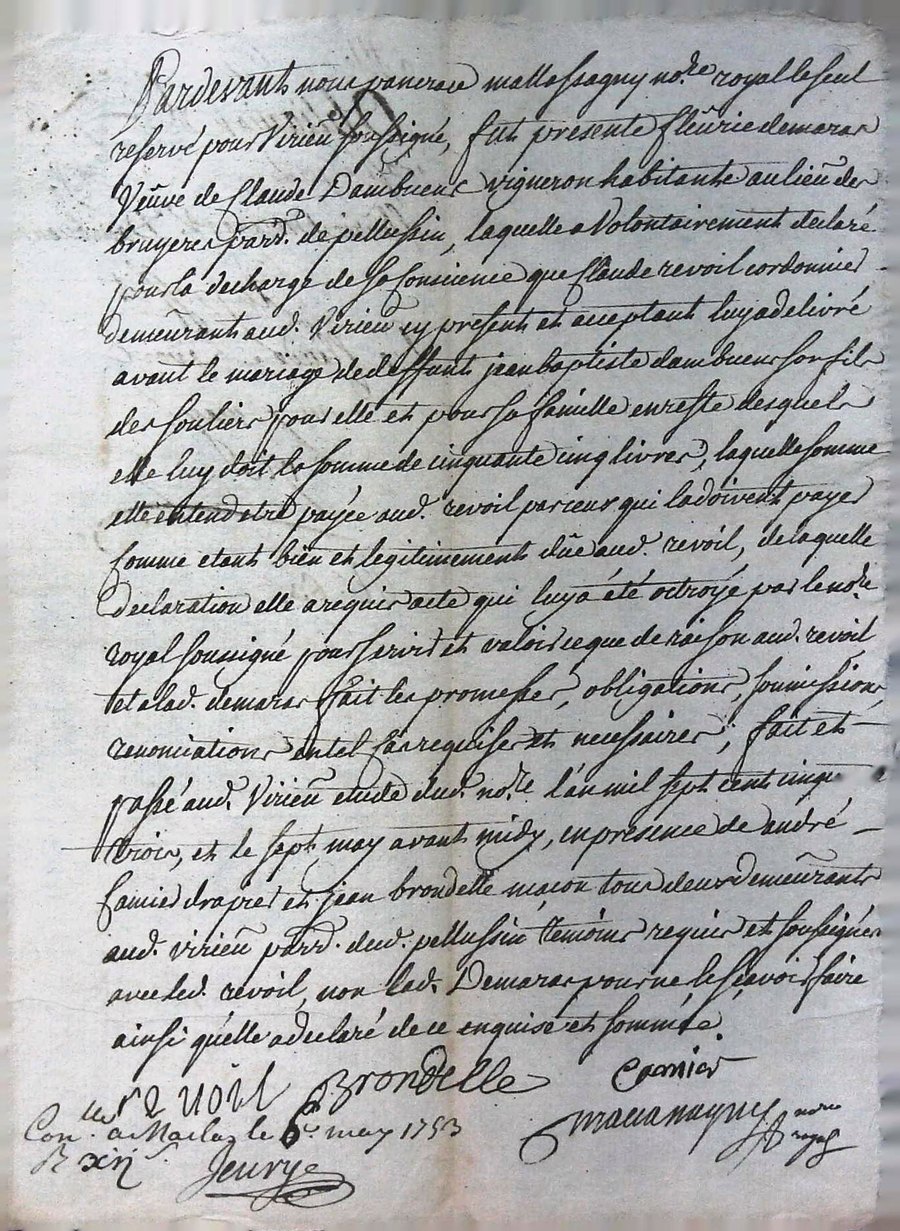 Pardevant nous pancrace mattassagny no.re royal le seul
reservé pour Virieu soussigné, fut presente fleurie demaras
Veuve de Claude Dambuens vigneron habitante au lieu des
bruyeres parr. de pellussin, laquelle a Volontairement declaré
pour la decharge de sa Conscience que Claude revoil cordonnier
demeurant aud. Virieu cy present et acceptant luy a delivré
avant le mariage de deffunt jean baptiste dambuens son fils
des souliers pour elle et pour sa famille en reste desquels
elle luy doit la somme de cinquante cinq livres, laquelle somme
elle entend etre payée aud. revoil par ceux qui la doivent payer
Comme etant bien et legitimement düe aud. revoil, de laquelle
declaration elle a requis acte qui luy a été octroyé par le no.re
royal soussigné pour servir et valoir ce que de raison aud. revoil
et a lad. demaras fait les promesses, obligations, soumissions,
renonciations en tel cas requises et necessaires; fait et
passé aud. Virieu etude dud. no.re l'an mil sept cent cinq
trois, et le sept may avant midy, en presence de andré
Camier drapier et jean brondelle maçon tous deux demeurants
aud. virieu parr. dud. pellussin temoins requis et soussignés
avec led. revoil, non lad. Demaras pour ne le sçavoir faire
ainsi qu'elle a declaré de ce enquise et sommée.
revoil Brondelle Camier
Con.lé a Maclas le 6e may 1753
no.re royal
R xij s.
Jeurye